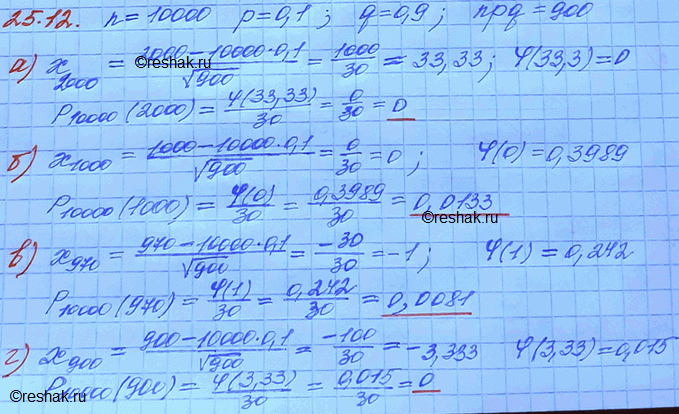 25.12. n = 10000 p = 0,1 ; q = 0,9 ; npq = 900
а) x₂₀₀₀ = (2000 − 10000·0,1)/√900 = 1000/30 = 33,33; φ(33,3) = 0
©reshak.ru
P₁₀₀₀₀(2000) = φ(33,33)/30 = 0/30 = 0
б) x₁₀₀₀ = (1000 − 10000·0,1)/√900 = 0/30 = 0 ; φ(0) = 0,3989
P₁₀₀₀₀(1000) = φ(0)/30 = 0,3989/30 = 0,0133
©reshak.ru
в) x₉₇₀ = (970 − 10000·0,1)/√900 = −30/30 = −1 ; φ(1) = 0,242
P₁₀₀₀₀(970) = φ(1)/30 = 0,242/30 = 0,0081
г) x₉₀₀ = (900 − 10000·0,1)/√900 = −100/30 = −3,333 φ(3,33) = 0,015
©reshak.ru
P₁₀₀₀₀(900) = φ(3,33)/30 = 0,015/30 = 0